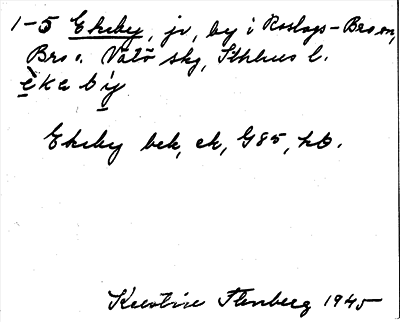 1-5 Ekeby, jr, by i Roslags-Bro sn,
Bro o. Vätö skg, Sthlms l.
èkebý
Ekeby bek, ek, G85, hO.
Kerstine Stenberg 1945